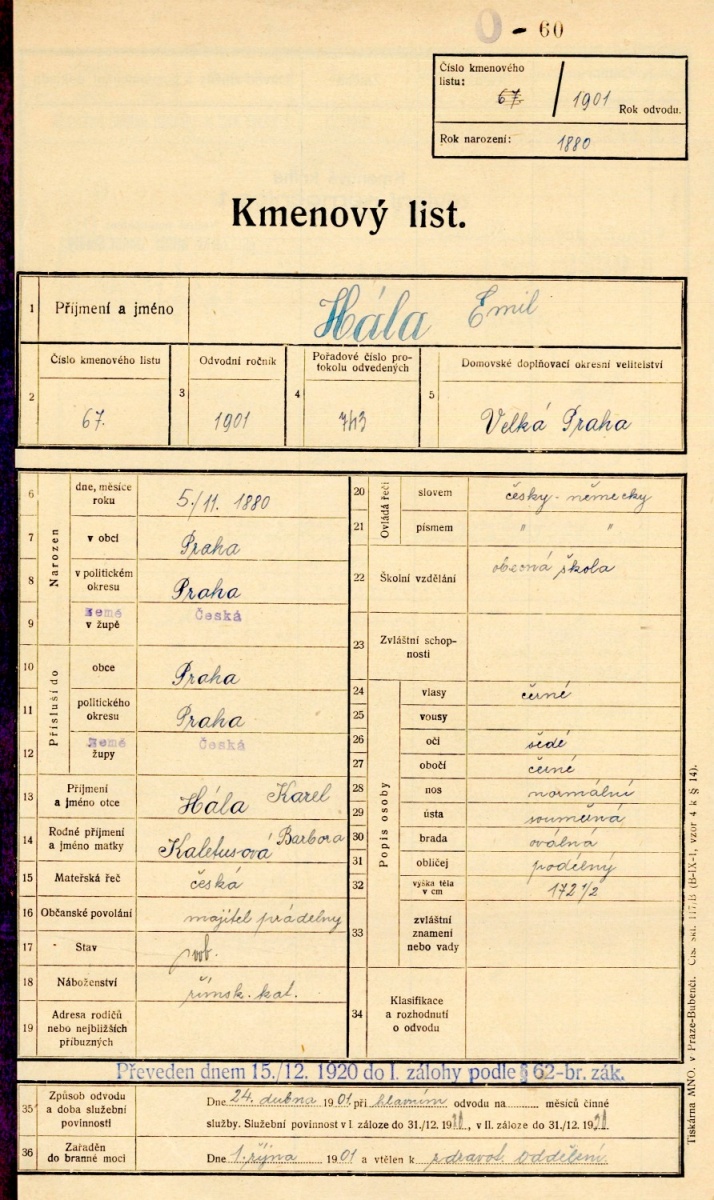 0 - 60
Číslo kmenového
listu:
67 / 1901 Rok odvodu.
Rok narození: 1880
Kmenový list.
1 Příjmení a jméno Hála Emil
2 Číslo kmenového listu 67.
3 Odvodní ročník 1901
4 Pořadové číslo pro-
tokolu odvedených 743
5 Domovské doplňovací okresní velitelství Velká Praha
Narozen
6 dne, měsíce
roku 5./11. 1880
7 v obci Praha
8 v politickém
okresu Praha
9 Země
v župě Česká
Přísluší do
10 obce Praha
11 politického
okresu Praha
12 Země
župy Česká
13 Příjmení
a jméno otce Hála Karel
14 Rodné příjmení
a jméno matky Kaletusová Barbora
15 Mateřská řeč česká
16 Občanské povolání majitel prádelny
17 Stav svob.
18 Náboženství římsk. kat.
19 Adresa rodičů
nebo nejbližších
příbuzných
Ovládá řeči
20 slovem česky - německy
21 písmem " "
22 Školní vzdělání obecná škola
23 Zvláštní schop-
nosti
Popis osoby
24 vlasy černé
25 vousy
26 oči šedé
27 obočí černé
28 nos normální
29 ústa souměrná
30 brada oválná
31 obličej podélný
32 výška těla
v cm 172 1/2
33 zvláštní
znamení
nebo vady
34 Klasifikace
a rozhodnutí
o odvodu
Převeden dnem 15./12. 1920 do I. zálohy podle § 62-br. zák.
35 Způsob odvodu
a doba služební
povinnosti
Dne 24. dubna 1901 při hlavním odvodu na měsíců činné
služby. Služební povinnost v I. záloze do 31./12. 19, v II. záloze do 31./12. 19
36 Zařaděn
do branné moci
Dne 1. října 1901 a vtělen k zdravot. oddělení.
Tiskárna MNO. v Praze-Bubenči. Čís. skl. 117/B (B-IX-1, vzor 4 k § 14).